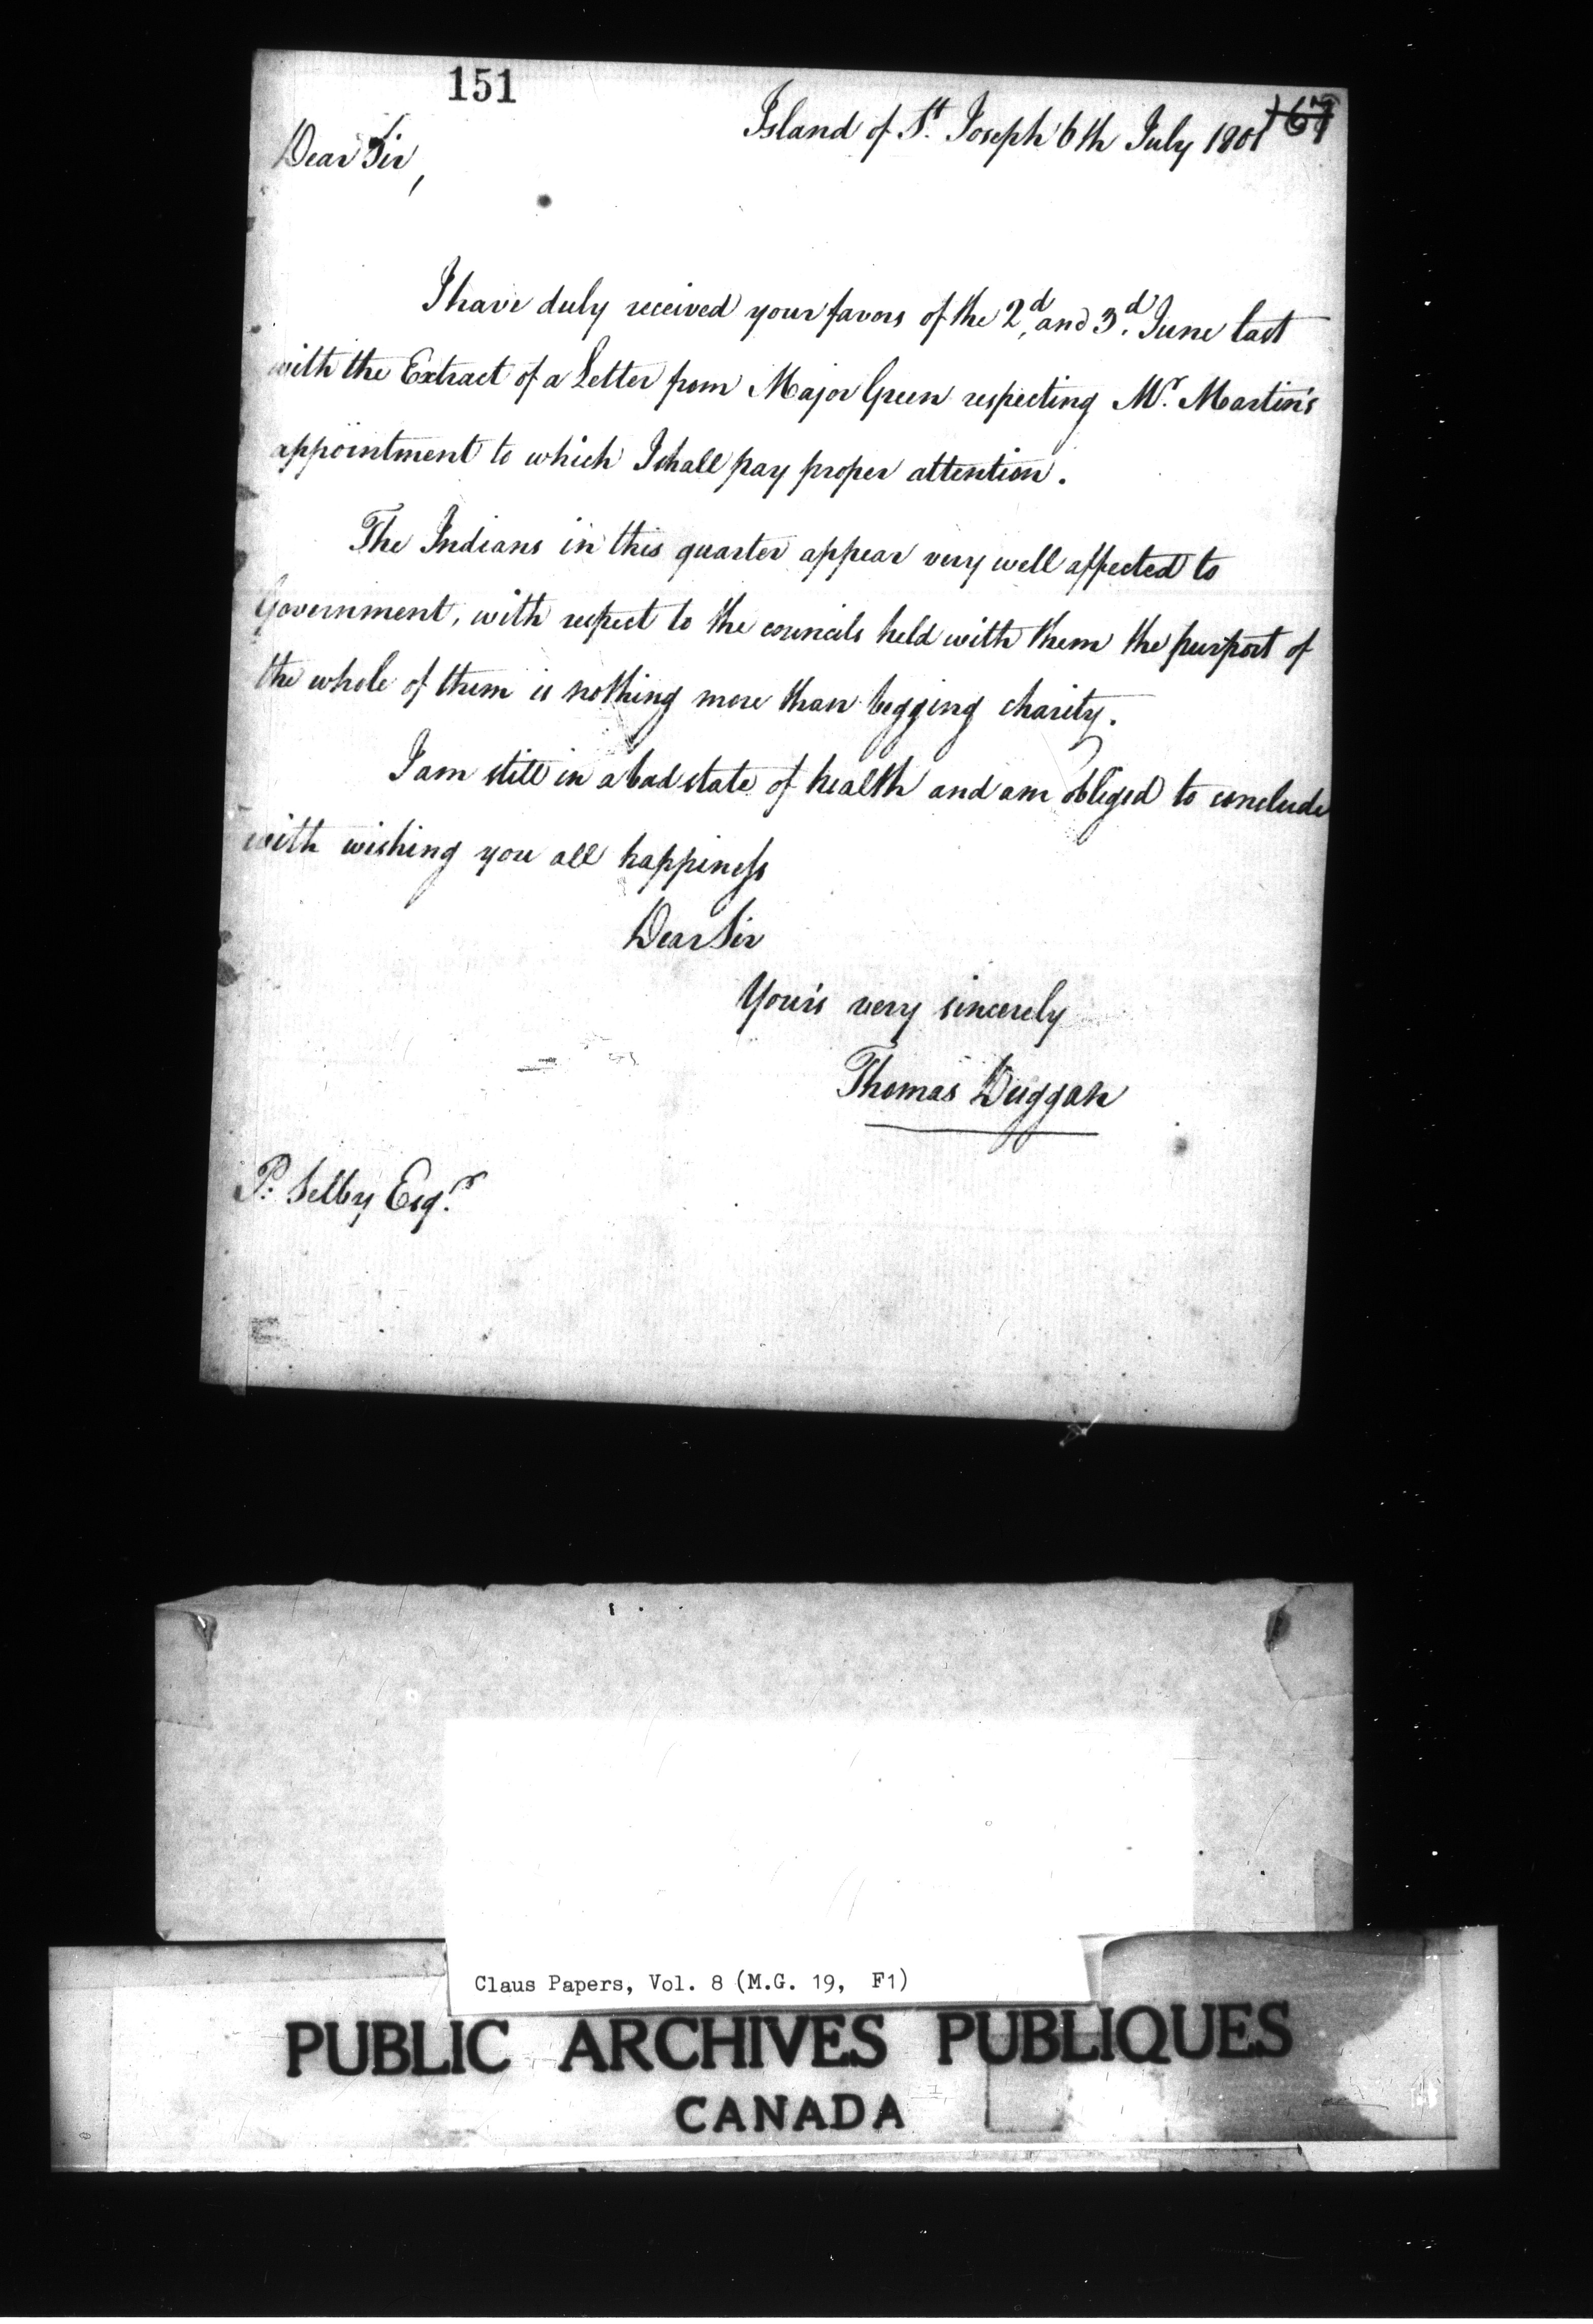 151
167
Island of St. Joseph 6th July 1801
Dear Sir,
I have duly received your favors of the 2d. and 3d. June last
with the Extract of a Letter from Major Green respecting Mr. Martin's
appointment to which I shall pay proper attention.
The Indians in this quarter appear very well affected to
Government, with respect to the councils held with them the purport of
the whole of them is nothing more than begging charity.
I am still in a bad state of health and am obliged to conclude
with wishing you all happiness
Dear Sir
Your's very sincerely
Thomas Duggan
P: Selby Esqr.
Claus Papers, Vol. 8 (M.G. 19, F1)
PUBLIC ARCHIVES PUBLIQUES
CANADA